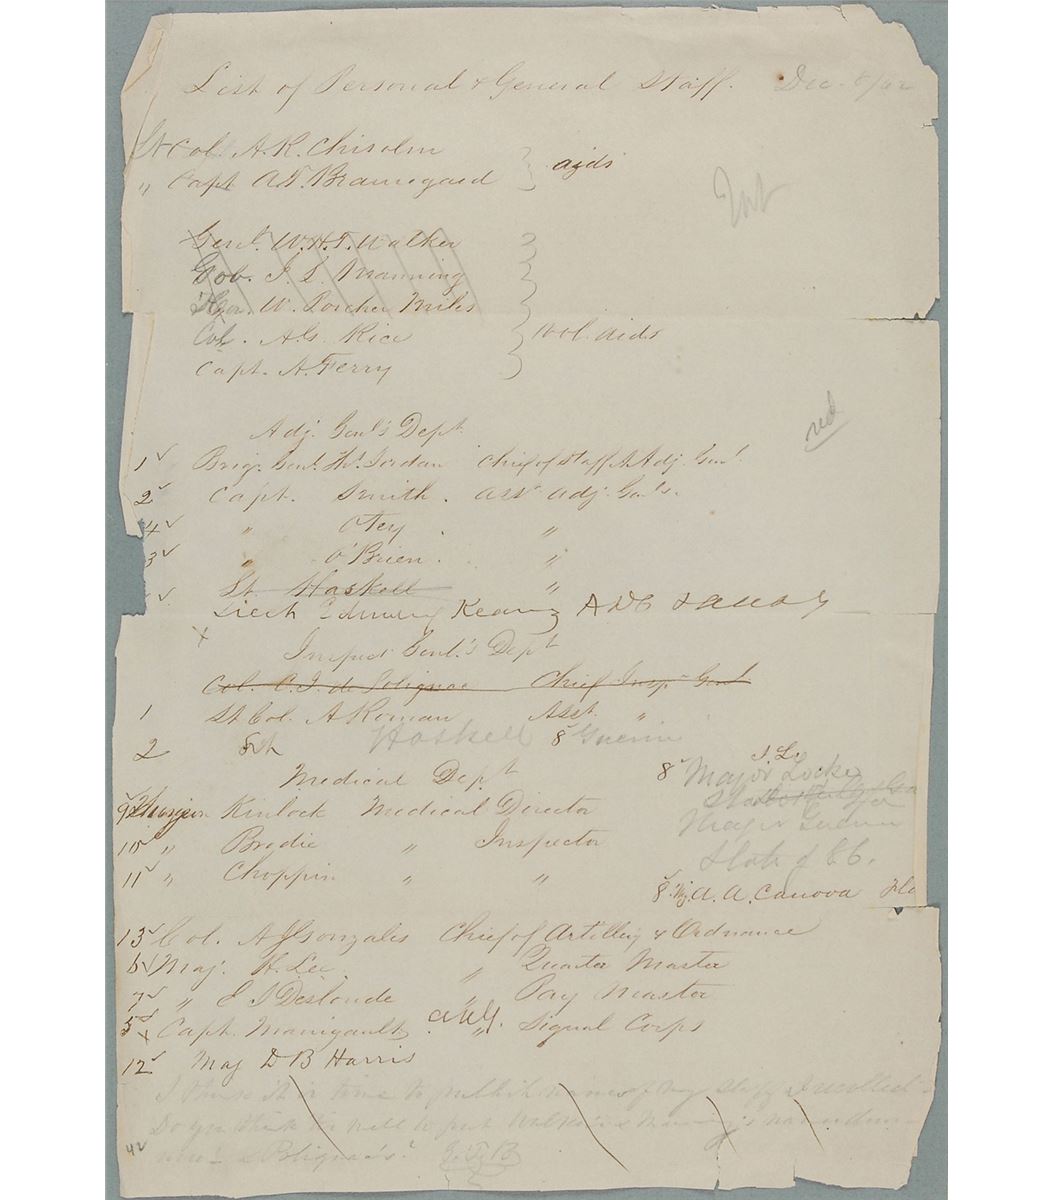 List of Personal & General Staff. Dec. 8/62
Lt Col. A.R. Chisolm
" Capt A.T. Beauregard } aids
Genl. W.H.T. Walker
Gov. J. L. Manning
Hon. W. Porcher Miles
Col. A.G. Rice } vol. aids
Capt. A. Ferry
red
Adj. Genl's Dept.
1 Brig. Genl. Ths. Jordan Chief of Staff & Adj. Genl.
2 Capt. Smith. Asst Adj. Genls.
4 " Otey. "
3 " O'Brien. "
Lt. Haskell "
Lieut Kearny ADC
x
Inspect Genl.'s Dept
Col. C. J. de Polignac Chief Insp. Genl
1 Lt Col. A Roman Asst. "
2 Haskell 8 Guerin
Medical Dept
J. L.
8 Major Locke
9 Surgeon Kinlock Medical Director
Major Guerin
10 " Brodie " Inspector
State of
11 " Choppin " "
8 Mj. A. A. Canova Flo
13 Col. A J Gonzales Chief of Artillery & Ordnance
6 Maj. H. Lee " Quarter Master
7 " E I Deslonde " Pay Master
5 x Capt. Manigault " Signal Corps
12 Maj D B Harris
I think it is time to publish names of my staff
Do you think it well to put Walker's & Manning's names down
& Polignac's? G.T.B